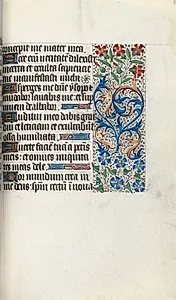 concepit me mater mea
Ecce enim veritatē dilexisti
incerta et occulta sapiencie
tue manifestasti michi
Asperges me dñe ysopo
mūdabor lavabis me et sup
nivem dealbabor
Auditui meo dabis gau
diū et leticiam et exultabūt
ossa humiliata
Averte faciē tuā a pctis
meis et omnes iniquita
tes meas dele
Cor mundum crea in
me deus et spm rectū īnova